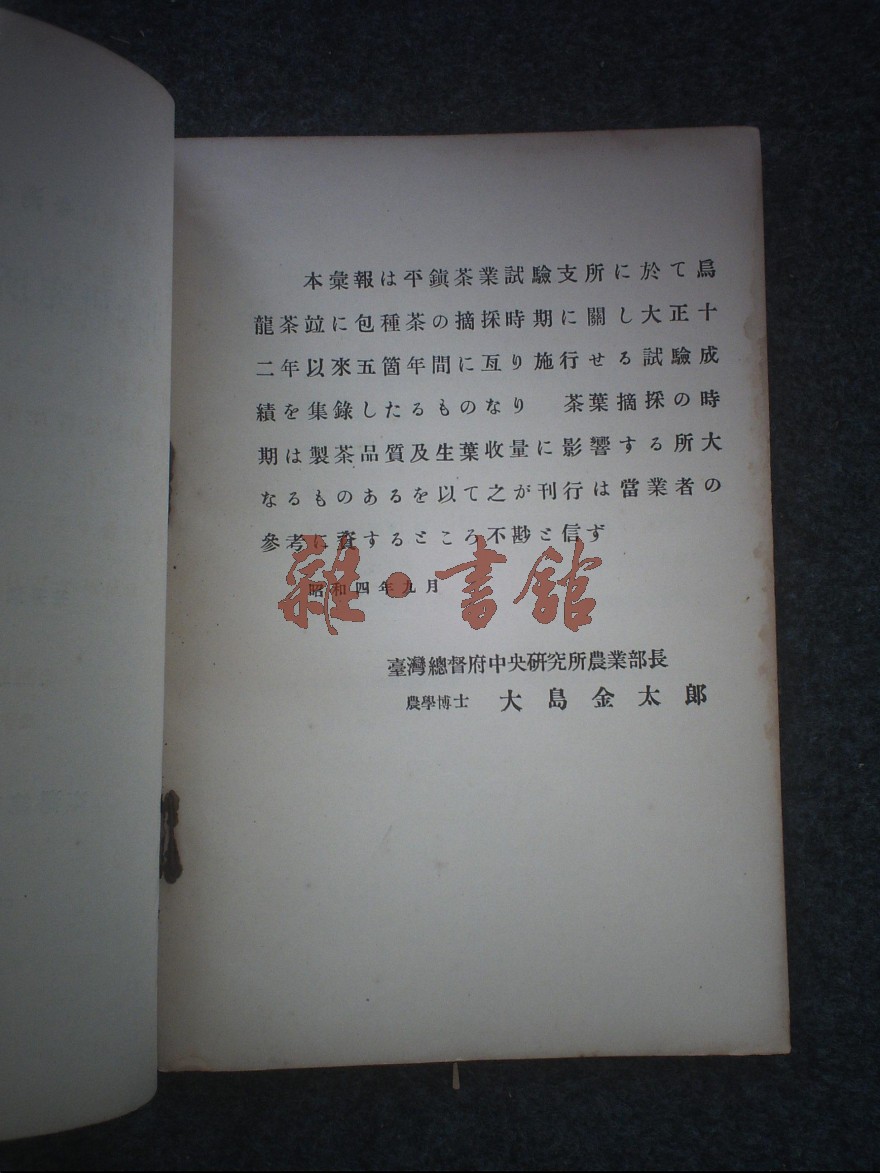 本彙報は平鎭茶業試驗支所に於て烏
龍茶竝に包種茶の摘採時期に關し大正十
二年以來五箇年間に亙り施行せる試驗成
績を集錄したるものなり 茶葉摘採の時
期は製茶品質及生葉收量に影響する所大
なるものあるを以て之が刊行は當業者の
參考に資するところ不尠と信ず
昭和四年九月
臺灣總督府中央硏究所農業部長
農學博士 大島金太郎
雜·書館